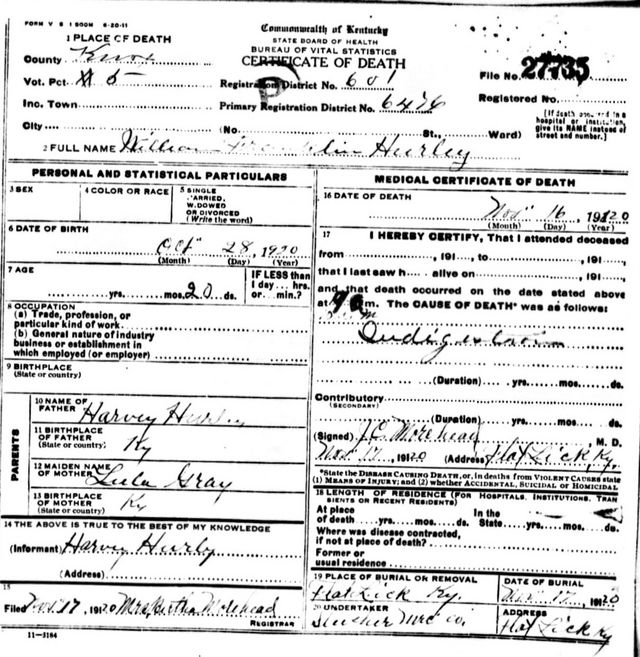 FORM V S 1 500M 6-20-11
Commonwealth of Kentucky
STATE BOARD OF HEALTH
BUREAU OF VITAL STATISTICS
CERTIFICATE OF DEATH
1 PLACE OF DEATH
County Knox
Vot. Pct. # 5
Inc. Town
City (No. St., Ward)
Registration District No. 601
Primary Registration District No. 6476
File No. 27735
Registered No.
[If death occurred in a hospital or institution, give its NAME instead of street and number.]
2 FULL NAME William Franklin Hurley
PERSONAL AND STATISTICAL PARTICULARS
3 SEX
4 COLOR OR RACE
5 SINGLE, MARRIED, WIDOWED OR DIVORCED (Write the word)
6 DATE OF BIRTH
Oct 28, 1920
(Month) (Day) (Year)
7 AGE
yrs. mos. 20 ds.
IF LESS than 1 day ... hrs. or ... min.?
8 OCCUPATION
(a) Trade, profession, or particular kind of work
(b) General nature of industry business or establishment in which employed (or employer)
9 BIRTHPLACE
(State or country)
PARENTS
10 NAME OF FATHER Harvey Hurly
11 BIRTHPLACE OF FATHER (State or country) Ky
12 MAIDEN NAME OF MOTHER Lula Gray
13 BIRTHPLACE OF MOTHER (State or country) Ky
14 THE ABOVE IS TRUE TO THE BEST OF MY KNOWLEDGE
(Informant) Harvey Hurly
(Address)
15
Filed Nov. 17, 1920 Mrs. Bertha Morehead
REGISTRAR
11-3184
MEDICAL CERTIFICATE OF DEATH
16 DATE OF DEATH
Nov 16, 1920
(Month) (Day) (Year)
17 I HEREBY CERTIFY, That I attended deceased
from , 191 , to , 191 ,
that I last saw h alive on , 191 ,
and that death occurred on the date stated above
at m. The CAUSE OF DEATH* was as follows:
Indigestion
(Duration) yrs. mos. ds.
Contributory
(SECONDARY)
(Duration) yrs. mos. ds.
(Signed) J.C. Morehead, M. D.
Nov. 17, 1920 (Address) Flat Lick Ky.
*State the DISEASE CAUSING DEATH, or, in deaths from VIOLENT CAUSES state (1) MEANS OF INJURY; and (2) whether ACCIDENTAL, SUICIDAL or HOMICIDAL
18 LENGTH OF RESIDENCE (FOR HOSPITALS, INSTITUTIONS, TRANSIENTS OR RECENT RESIDENTS)
At place of death yrs. mos. ds. In the State yrs. mos. ds.
Where was disease contracted, if not at place of death?
Former or usual residence
19 PLACE OF BURIAL OR REMOVAL
Flat Lick Ky.
DATE OF BURIAL
Nov. 17, 1920
20 UNDERTAKER
Mrc Co.
ADDRESS
Flat Lick Ky